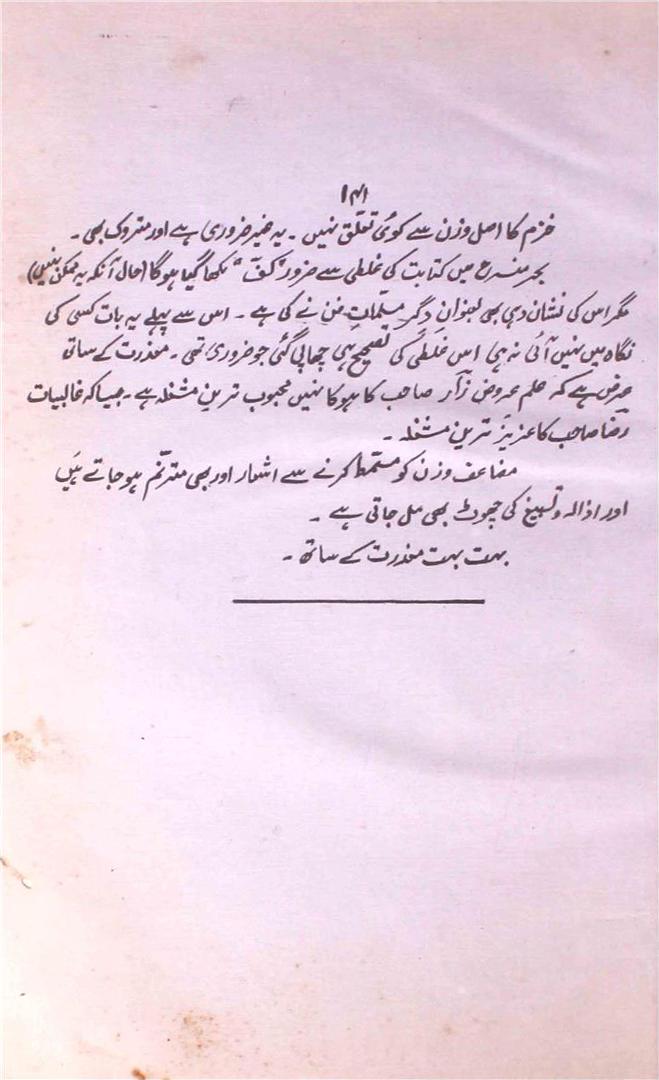 ۱۴۱
خزم کا اصل وزن سے کوئی تعلق نہیں ۔ یہ غیر ضروری ہے اور متروک بھی ۔
بحر منسرح میں کتابت کی غلطی سے ضرور "کف" لکھا گیا ہوگا (حال آنکہ یہ ممکن نہیں)
مگر اس کی نشان دہی بھی بعنوانِ دگر مسلماتِ فن نے کی ہے ۔ اس سے پہلے یہ بات کسی کی
نگاہ میں نہیں آئی نہ ہی اس غلطی کی تصحیح ہی چھاپی گئی جو ضروری تھی ۔ معذرت کے ساتھ
عرض ہے کہ علم عروض زار صاحب کا ہوکا نہیں محبوب ترین مشغلہ ہے ۔ جیسا کہ غالبیات
رضا صاحب کا عزیز ترین مشغلہ ۔
مضاعف وزن کو مسمّط کرنے سے اشعار اور بھی مترنّم ہو جاتے ہیں
اور اذالہ و تسبیغ کی چھوٹ بھی مل جاتی ہے ۔
بہت بہت معذرت کے ساتھ ۔